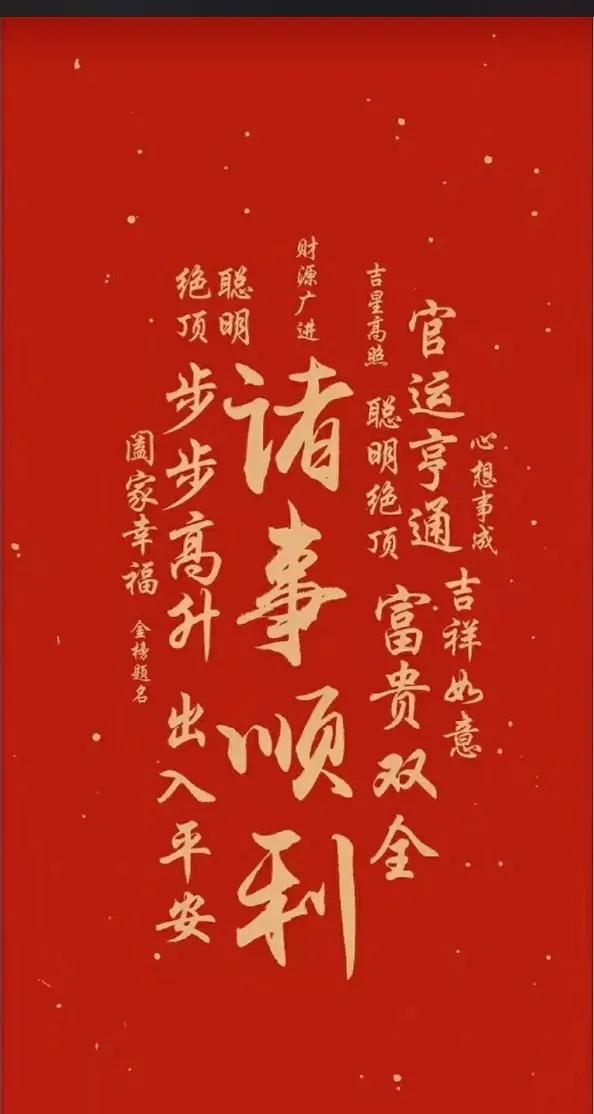 诸事顺利
财源广进
吉星高照
官运亨通
心想事成
聪明绝顶
聪明绝顶
步步高升
阖家幸福
金榜题名
富贵双全
吉祥如意
出入平安